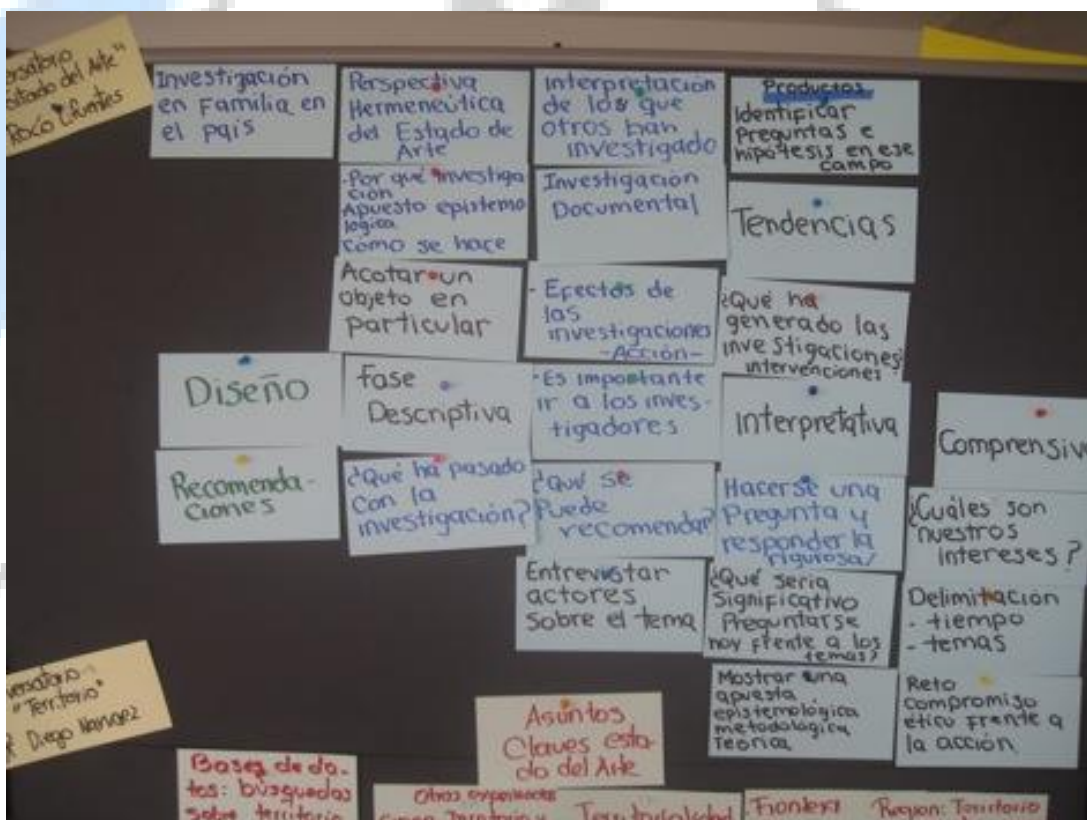 Estado del Arte"
Rocío Cifuentes
Investigación
en Familia en
el país
Perspectiva
Hermenéutica
del Estado de
Arte
Interpretación
de los que
otros han
investigado
Productos
Identificar
Preguntas e
hipótesis en ese
campo
-Por qué investiga
ción
Apuesto epistemo
lógica
Cómo se hace
Investigación
Documental
Tendencias
Acotar un
objeto en
particular
- Efectos de
las
investigaciones
-Acción-
¿Qué ha
generado las
investigaciones?
intervenciones
Diseño
Fase
Descriptiva
-Es importante
ir a los inves-
tigadores
Interpretativa
Comprensiv
Recomenda-
ciones
¿Qué ha pasado
con la
investigación?
¿Qué se
Puede
recomendar?
Hacerse una
Pregunta y
responderla
rigurosa/
¿Cuáles son
nuestros
intereses?
Entrevistar
actores
sobre el tema
¿Qué sería
Significativo
Preguntarse
hoy frente a los
temas?
Delimitación
- tiempo
- temas
Mostrar una
apuesta
epistemológica
metodológica
Teórica
Reto
compromiso
ético frente a
la acción
"Territorio"
Diego
Asuntos
Claves esta-
do del Arte
Bases de da-
tos: búsquedas
sobre territorio
Otras
Territorialidad
Frontera
Region: Territorio